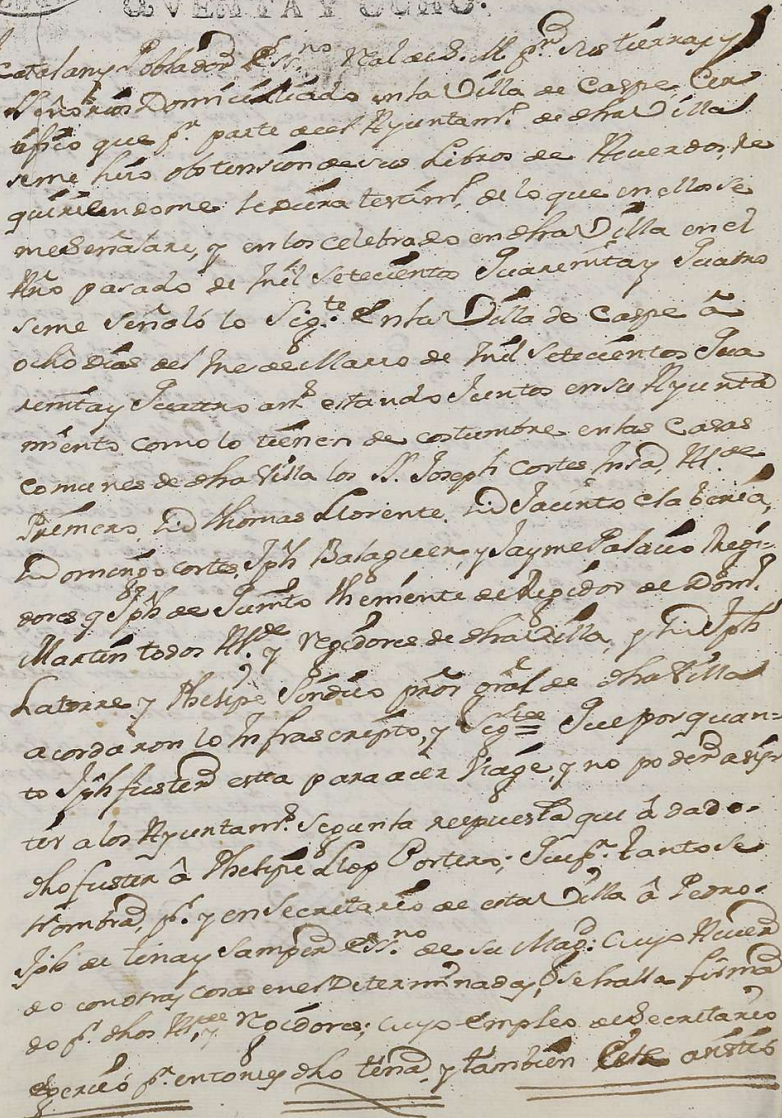 QVENTA Y OCHO.
Catalan y Poblador Ess.no Real de S. M. p.r sus tierras y
Señorios Domiciliado en la Villa de Caspe Cer
tifico que p.r parte del Ayuntam.to de dha Villa
seme hizo obstension de sus Libros de Acuerdos, re
quiriendome le diera testim.o de lo que en ellos se
me señalare, y en los celebrado en dha Villa en el
Año pasado de Mil Setecientos Quarenta y Quatro
seme señaló lo Sig.te En la Villa de Caspe â
ocho dias del Mes de Marzo de Mil Setecientos Qua
renta y Quattro an.s estando Juntos en su Ayunta
miento como lo tienen de costumbre en las Casas
comunes de dha Villa los SS. Joseph Cortes Al.de
Primero, D Thomas Llorente, D Jacinto
Domingo Cortes, Jph Balaguer, y Jayme Palacio Regi-
dores y Jph de Theniente de Regidor de Dom.o
Martin todos Al.de y Regidores de dha Villa, y D Jph
Latorre y Phelipe Sindico pror gral de dha Villa
acordaron lo Infrascripto, y Sig.te = Que por quan-
to Jph fuster esta para acer Viage, y no poder asis-
tir a los Ayuntam.s segun la respuesta que â dado
dho fuster â Phelipe Llop Portero; Que p.r tanto se
nombra, p.r y en Secretario de esta Villa â Pedro
Jph de Lena y Samper Ess.no de su Mag.d: Cuyo Acuer
do con otras cosas en el Determinadas, se halla firma
do p.r dhos Al.de y Regidores; cuyo empleo de Secretario
exercio p.r entonces dho Lena, y tambien Este